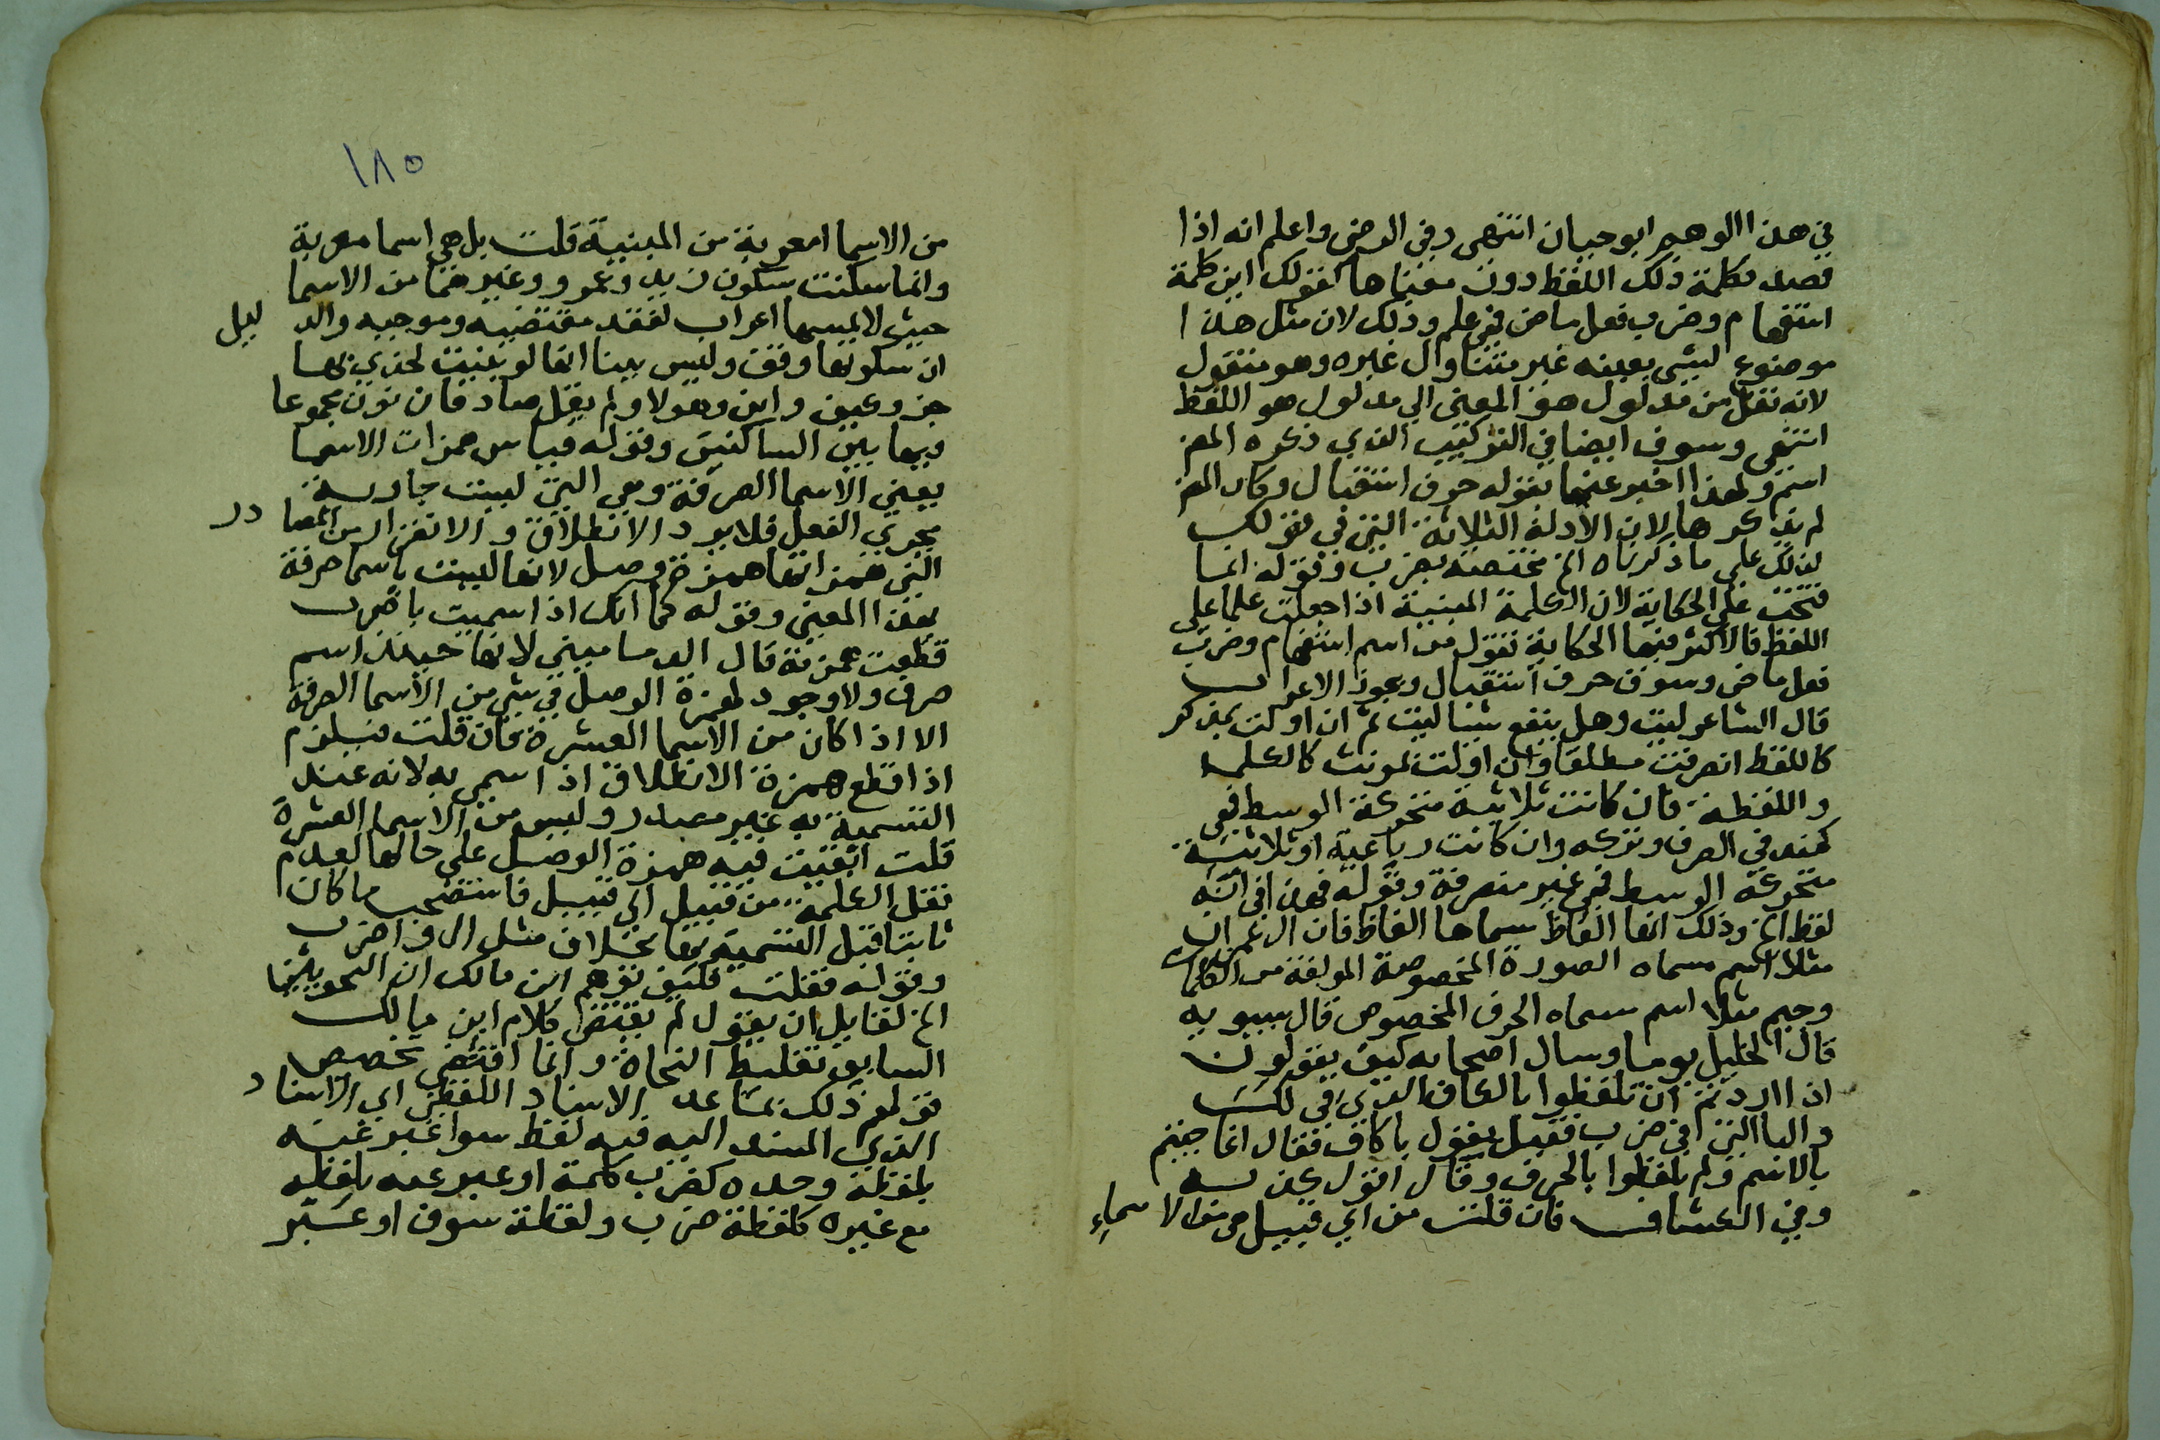 في هذا الوهم ابو حيان انتهى وفي الرضي واعلم انه اذا
قصد بكلمة ذلك اللفظ دون معناها كقولك اين كلمة
استفهام وضرب فعل ماض فهي علم وذلك لان مثل هذا
موضوع لشي بعينه غير متناول غيره وهو منقول
لانه نقل من مدلول هو المعنى الي مدلول هو اللفظ
انتهى وسوف ايضا في التركيب الذي ذكره المص
اسم ولهذا اخبر عنها بقوله حرف استقبال وكان المص
لم يذكرها لان الادلة الثلاثة التي في قولك
لذلك على ما ذكرناه الخ مختصة بضرب وقوله انما
فتحت على الحكاية لان الكلمة المبنية اذا جعلت علما على
اللفظ فالاكثر فيها الحكاية تقول من اسم استفهام وضرب
فعل ماض وسوف حرف استقبال ويجوز الاعراب
قال الشاعر ليت وهل ينفع شيا ليت ثم ان اولت بمذكر
كاللفظ انصرفت مطلقا وان اولت بمونث كالكلمة
واللفظة فان كانت ثلاثية متحركة الوسط فهي
كهند في الصرف وتركه وان كانت رباعية او ثلاثية
متحركة الوسط فهي غير منصرفة وقوله فهذا في انه
لفظ الخ وذلك انها الفاظ مسماها الفاظ فان ال عمران
مثلا اسم مسماه الصورة المخصوصة المولفة من الكلمات
وجيم مثلا اسم مسماه الحرف المخصوص قال سيبويه
قال الخليل يوما وسال اصحابه كيف يقولون
اذا اردتم ان تلفظوا بالكاف الذي في لك
والبا التي في ضرب فقيل يقول باكاف فقال انما جئتم
بالاسم ولم تلفظوا بالحرف وقال اقول كه به
وفي الكشاف فان قلت من اي قبيل هي من الاسماء
١٨٥
من الاسما امعربة من المبنية قلت بل هي اسما معربة
وانما سكنت سكون زيد وعمرو وغيرهما من الاسما
حيث لا يمسها اعراب لفقد مقتضيه وموجبه والدليل
ان سكونها وقف وليس بينا انها لو بنيت لحذي بها
حذو كيف واين وهولا ولم يقل صاد قاف نون مجموعا
فيها بين الساكنين وقوله قياس همزات الاسما
يعني الاسما الصرفة وهي التي ليست جارية
مجري الفعل فلا يرد الانطلاق و من المصادر
التي همزاتها همزة وصل لانها ليست باسما صرفة
بهذا المعنى وقوله كما انك اذا سميت باضرب
قطعت همزته قال الدماميني لانها حينئذ اسم
صرف ولا وجود لهمزة الوصل في شي من الاسما الصرفة
الا اذا كان من الاسما العشرة فان قلت فيلزم
اذا قطع همزة الانطلاق اذا سمي به لانه عند
التسمية به غير مصدر وليس من الاسما العشرة
قلت ابقيت فيه همزة الوصل على حالها لعدم
نقل الكلمة من قبيل الي قبيل فاستصحب ما كان
ثابتا قبل التسمية بها بخلاف مثل ال واضرب
وقوله فقلت فكيف توهم ابن مالك ان النحويين
الخ لقايل ان يقول لم يقتض كلام ابن مالك
السابق تغليط النحاة وانما اقتضى تخصيص
قولهم ذلك بما عدا الاسناد اللفظي اي الاسناد
الذي المسند اليه فيه لفظ سوا عبر عنه
بلفظه وحده كضرب كلمة او عبر عنه بلفظه
مع غيره كلفظة ضرب ولفظة سوف او عبر